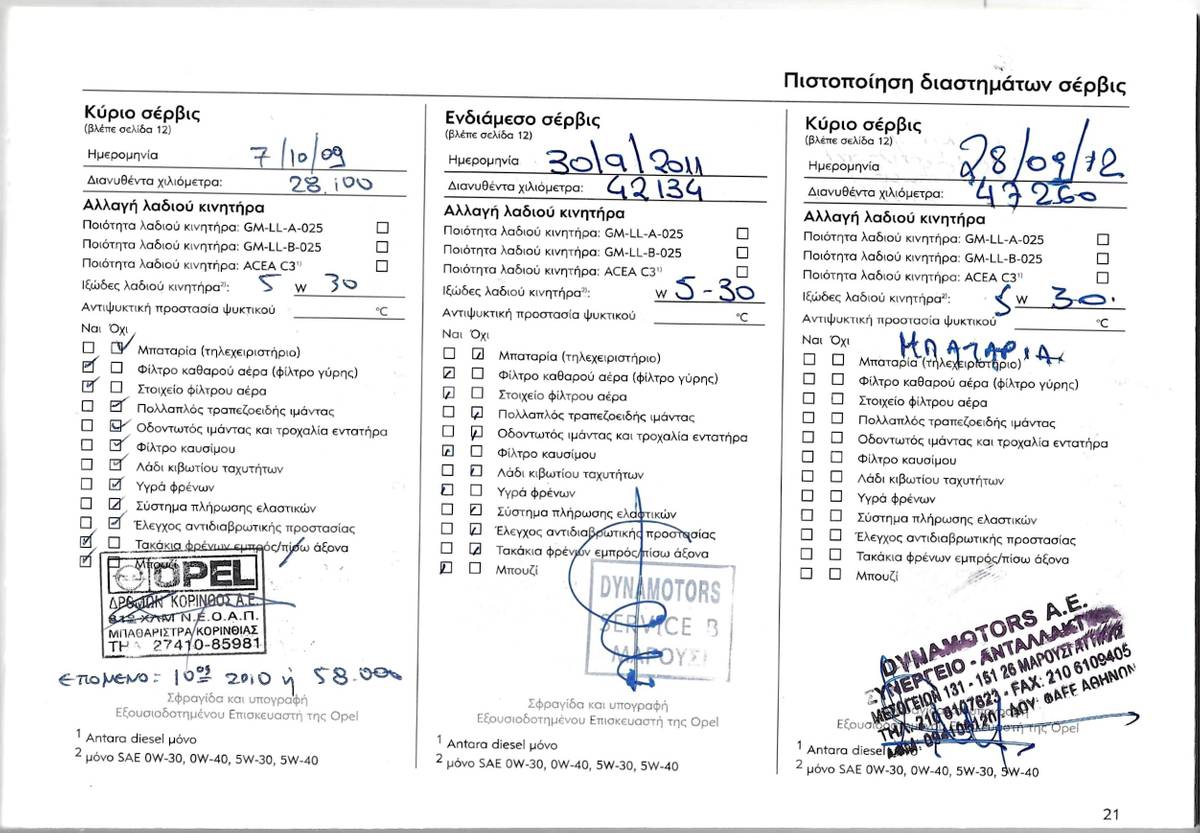 Πιστοποίηση διαστημάτων σέρβις
Κύριο σέρβις
(βλέπε σελίδα 12)
Ημερομηνία 7/10/09
Διανυθέντα χιλιόμετρα: 28.100
Αλλαγή λαδιού κινητήρα
Ποιότητα λαδιού κινητήρα: GM-LL-A-025
Ποιότητα λαδιού κινητήρα: GM-LL-B-025
Ποιότητα λαδιού κινητήρα: ACEA C3¹⁾
Ιξώδες λαδιού κινητήρα²⁾: 5 W 30
Αντιψυκτική προστασία ψυκτικού °C
Ναι Όχι
Μπαταρία (τηλεχειριστήριο)
Φίλτρο καθαρού αέρα (φίλτρο γύρης)
Στοιχείο φίλτρου αέρα
Πολλαπλός τραπεζοειδής ιμάντας
Οδοντωτός ιμάντας και τροχαλία εντατήρα
Φίλτρο καυσίμου
Λάδι κιβωτίου ταχυτήτων
Υγρά φρένων
Σύστημα πλήρωσης ελαστικών
Έλεγχος αντιδιαβρωτικής προστασίας
Τακάκια φρένων εμπρός/πίσω άξονα
Μπουζί
OPEL
ΔΡΟΜΩΝ ΚΟΡΙΝΘΟΣ Α.Ε.
ΧΛΜ Ν.Ε.Ο.Α.Π.
ΜΠΑΘΑΡΙΣΤΡΑ ΚΟΡΙΝΘΙΑΣ
ΤΗΛ 27410-85981
ΕΠΟΜΕΝΟ: 10ος 2010 ή 58.000
Σφραγίδα και υπογραφή
Εξουσιοδοτημένου Επισκευαστή της Opel
1 Antara diesel μόνο
2 μόνο SAE 0W-30, 0W-40, 5W-30, 5W-40
Ενδιάμεσο σέρβις
(βλέπε σελίδα 12)
Ημερομηνία 30/9/2011
Διανυθέντα χιλιόμετρα: 42134
Αλλαγή λαδιού κινητήρα
Ποιότητα λαδιού κινητήρα: GM-LL-A-025
Ποιότητα λαδιού κινητήρα: GM-LL-B-025
Ποιότητα λαδιού κινητήρα: ACEA C3¹⁾
Ιξώδες λαδιού κινητήρα²⁾: W 5-30
Αντιψυκτική προστασία ψυκτικού °C
Ναι Όχι
Μπαταρία (τηλεχειριστήριο)
Φίλτρο καθαρού αέρα (φίλτρο γύρης)
Στοιχείο φίλτρου αέρα
Πολλαπλός τραπεζοειδής ιμάντας
Οδοντωτός ιμάντας και τροχαλία εντατήρα
Φίλτρο καυσίμου
Λάδι κιβωτίου ταχυτήτων
Υγρά φρένων
Σύστημα πλήρωσης ελαστικών
Έλεγχος αντιδιαβρωτικής προστασίας
Τακάκια φρένων εμπρός/πίσω άξονα
Μπουζί
DYNAMOTORS
SERVICE B
ΜΑΡΟΥΣΙ
Σφραγίδα και υπογραφή
Εξουσιοδοτημένου Επισκευαστή της Opel
1 Antara diesel μόνο
2 μόνο SAE 0W-30, 0W-40, 5W-30, 5W-40
Κύριο σέρβις
(βλέπε σελίδα 12)
Ημερομηνία 28/09/12
Διανυθέντα χιλιόμετρα: 47260
Αλλαγή λαδιού κινητήρα
Ποιότητα λαδιού κινητήρα: GM-LL-A-025
Ποιότητα λαδιού κινητήρα: GM-LL-B-025
Ποιότητα λαδιού κινητήρα: ACEA C3¹⁾
Ιξώδες λαδιού κινητήρα²⁾: 5 W 30.
Αντιψυκτική προστασία ψυκτικού °C
Ναι Όχι ΜΠΑΤΑΡΙΑ
Μπαταρία (τηλεχειριστήριο)
Φίλτρο καθαρού αέρα (φίλτρο γύρης)
Στοιχείο φίλτρου αέρα
Πολλαπλός τραπεζοειδής ιμάντας
Οδοντωτός ιμάντας και τροχαλία εντατήρα
Φίλτρο καυσίμου
Λάδι κιβωτίου ταχυτήτων
Υγρά φρένων
Σύστημα πλήρωσης ελαστικών
Έλεγχος αντιδιαβρωτικής προστασίας
Τακάκια φρένων εμπρός/πίσω άξονα
Μπουζί
DYNAMOTORS A.E.
ΣΥΝΕΡΓΕΙΟ - ΑΝΤΑΛΛΑΚΤ
ΜΕΣΟΓΕΙΩΝ 131 - 151 26 ΜΑΡΟΥΣΙ ΑΤΤΙΚΗΣ
ΤΗΛ. 210 6107623 - FAX: 210 6109405
ΔΟΥ ΦΑΕΕ ΑΘΗΝΩΝ
της Opel
1 Antara diesel μόνο
2 μόνο SAE 0W-30, 0W-40, 5W-30, 5W-40
21